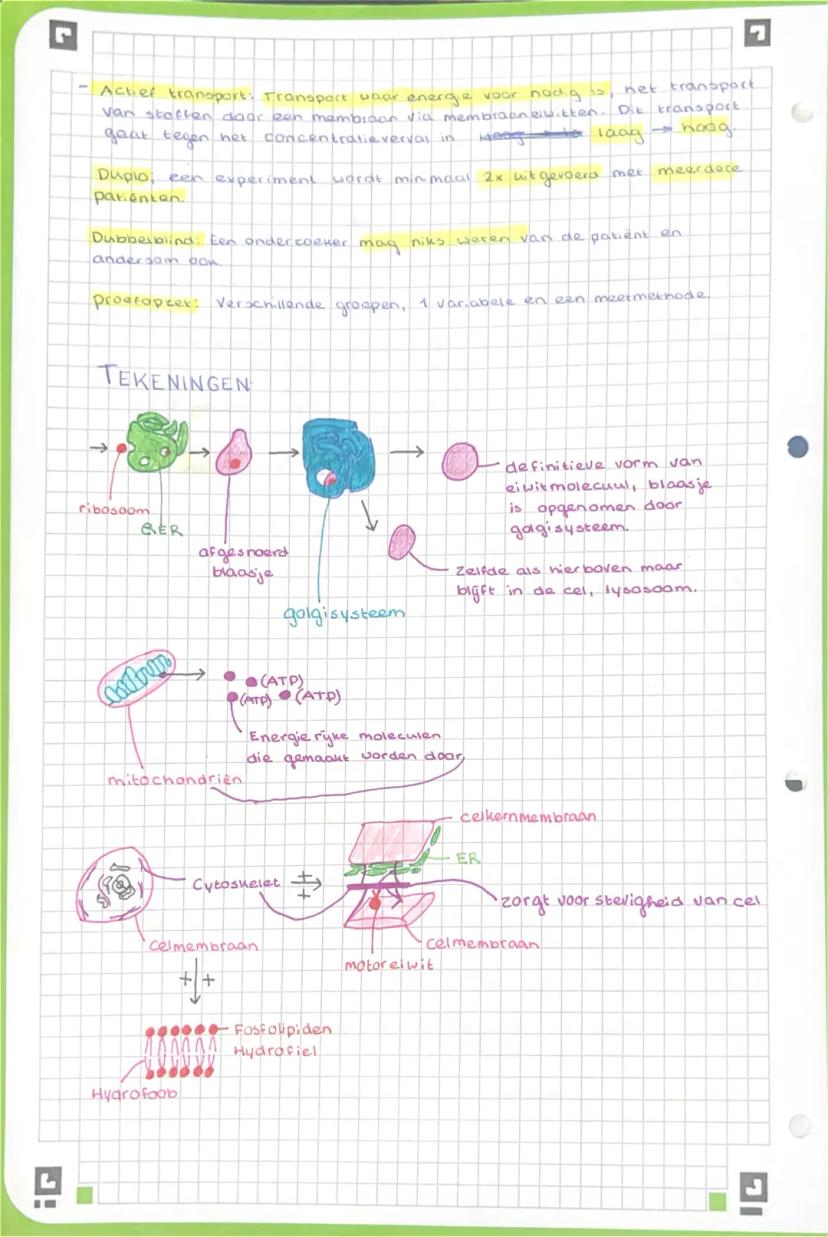 - Actief transport: Transport waar energie voor nodig is, het transport
van stoffen door een membraan via membraaneiwitten. Dit transport
gaat tegen het concentratieverval in laag → hoog.
Duplo; een experiment wordt minimaal 2x uitgevoerd met meerdere
patiënten.
Dubbelblind: Een onderzoeker mag niks weten van de patiënt en
andersom ook.
proefopzet: Verschillende groepen, 1 variabele en een meetmethode
TEKENINGEN
ribosoom
RER
afgesnoerd
blaasje
golgisysteem
definitieve vorm van
eiwitmolecuul, blaasje
is opgenomen door
golgisysteem.
Zelfde als hierboven maar
blijft in de cel, lysosoom.
(ATP)
(ATP) (ATP)
Energierijke moleculen
die gemaakt worden door
mitochondriën
celkernmembraan
ER
Cytoskelet
zorgt voor stevigheid van cel
celmembraan
celmembraan
motoreiwit
Fosfolipiden
Hydrofiel
Hydrofoob